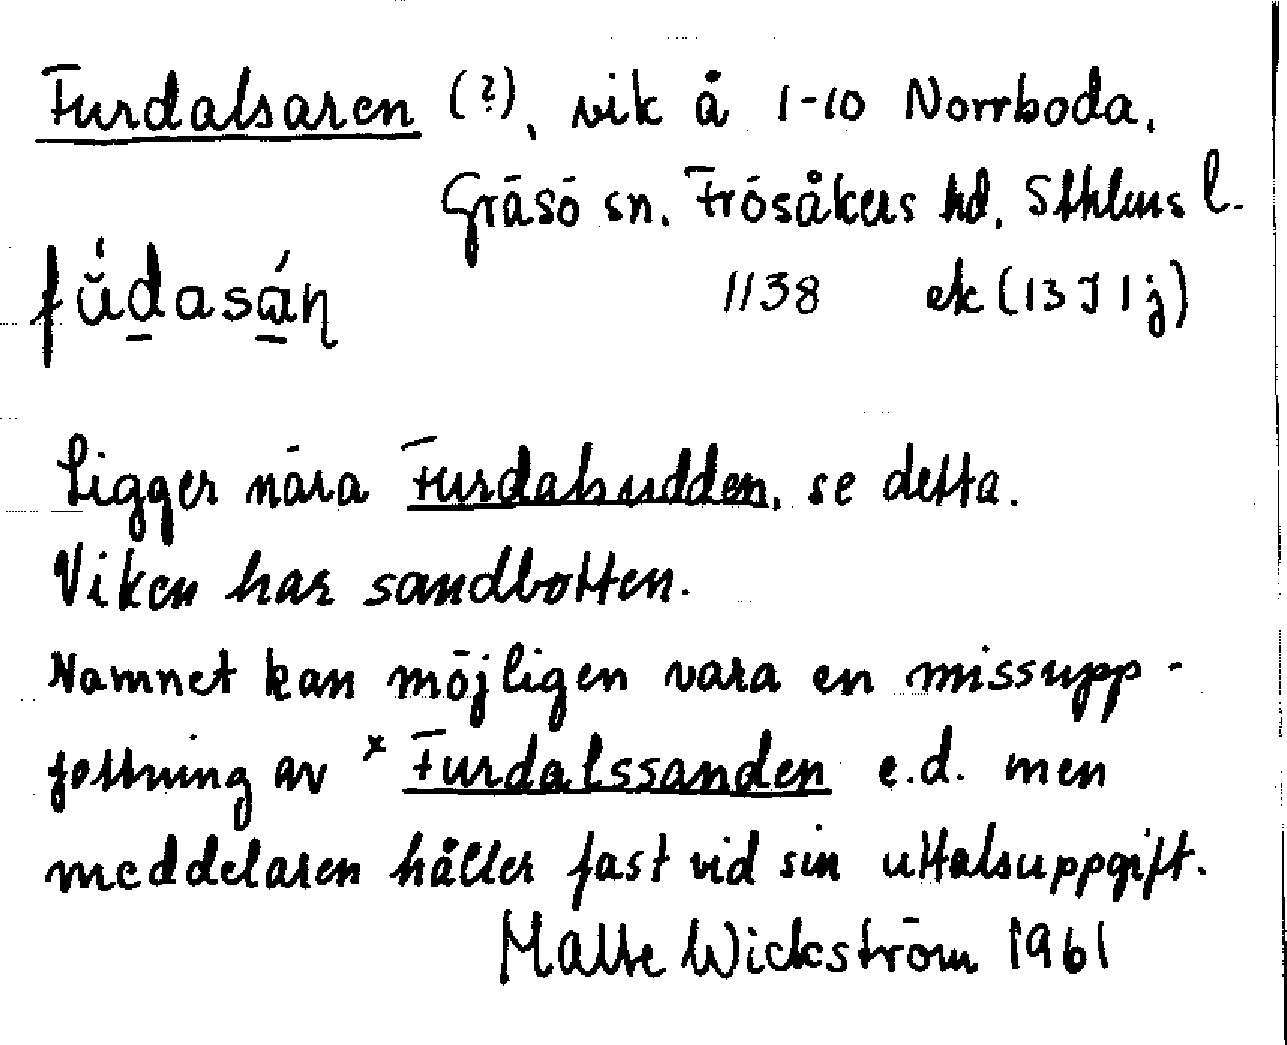 Furdalsaren (?), vik å 1-10 Norrboda,
Gräsö sn. Frösåkers hd, Sthlms l.
1138 ek (13 I 1 j)
Ligger nära Furdalsudden, se detta.
Viken har sandbotten.
Namnet kan möjligen vara en missupp-
fattning av *Furdalssanden e.d. men
meddelaren håller fast vid sin uttalsuppgift.
Malte Wickström 1961